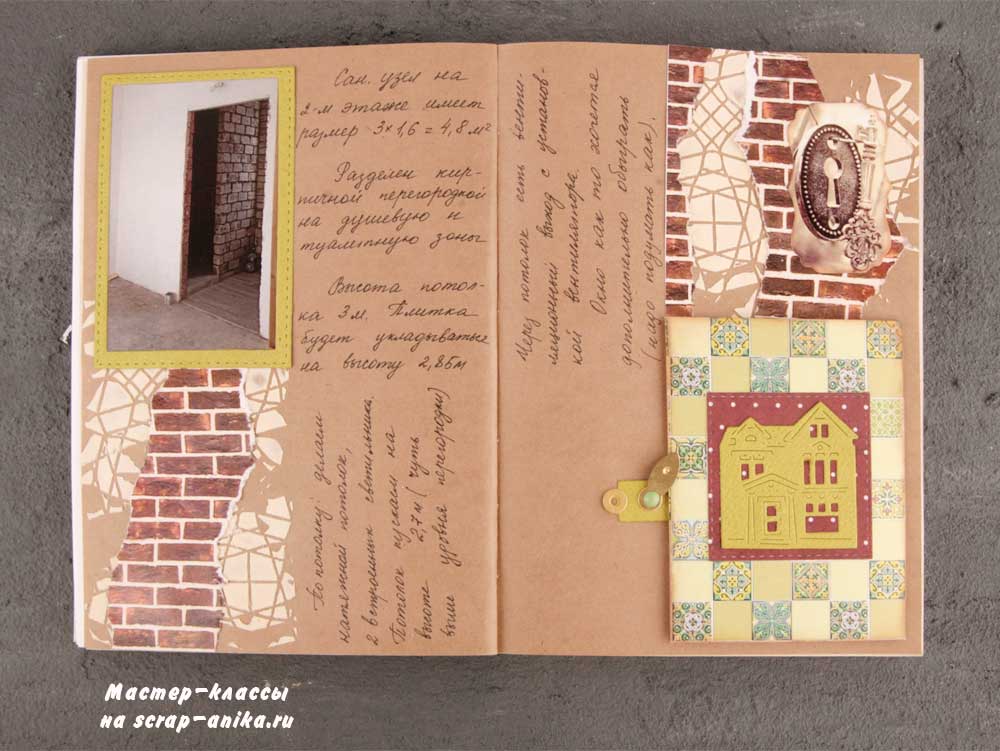 Сан. узел на
2-м этаже имеет
размер 3×1,6 = 4,8 м²
Разделен кир-
пичной перегородкой
на душевую и
туалетную зоны
Высота потол-
ка 3м. Плитка
будет укладываться
на высоту 2,85м
По потолку: делаем
натяжной потолок,
2 встроенных светильника.
Потолок пускаем на
высоте 2,7м (чуть
выше уровня перегородки)
Через потолок есть венти-
ляционный выход с установ-
кой вентилятора.
Окно как то хочется
дополнительно обыграть
(надо подумать как).
Мастер-классы
на scrap-anika.ru